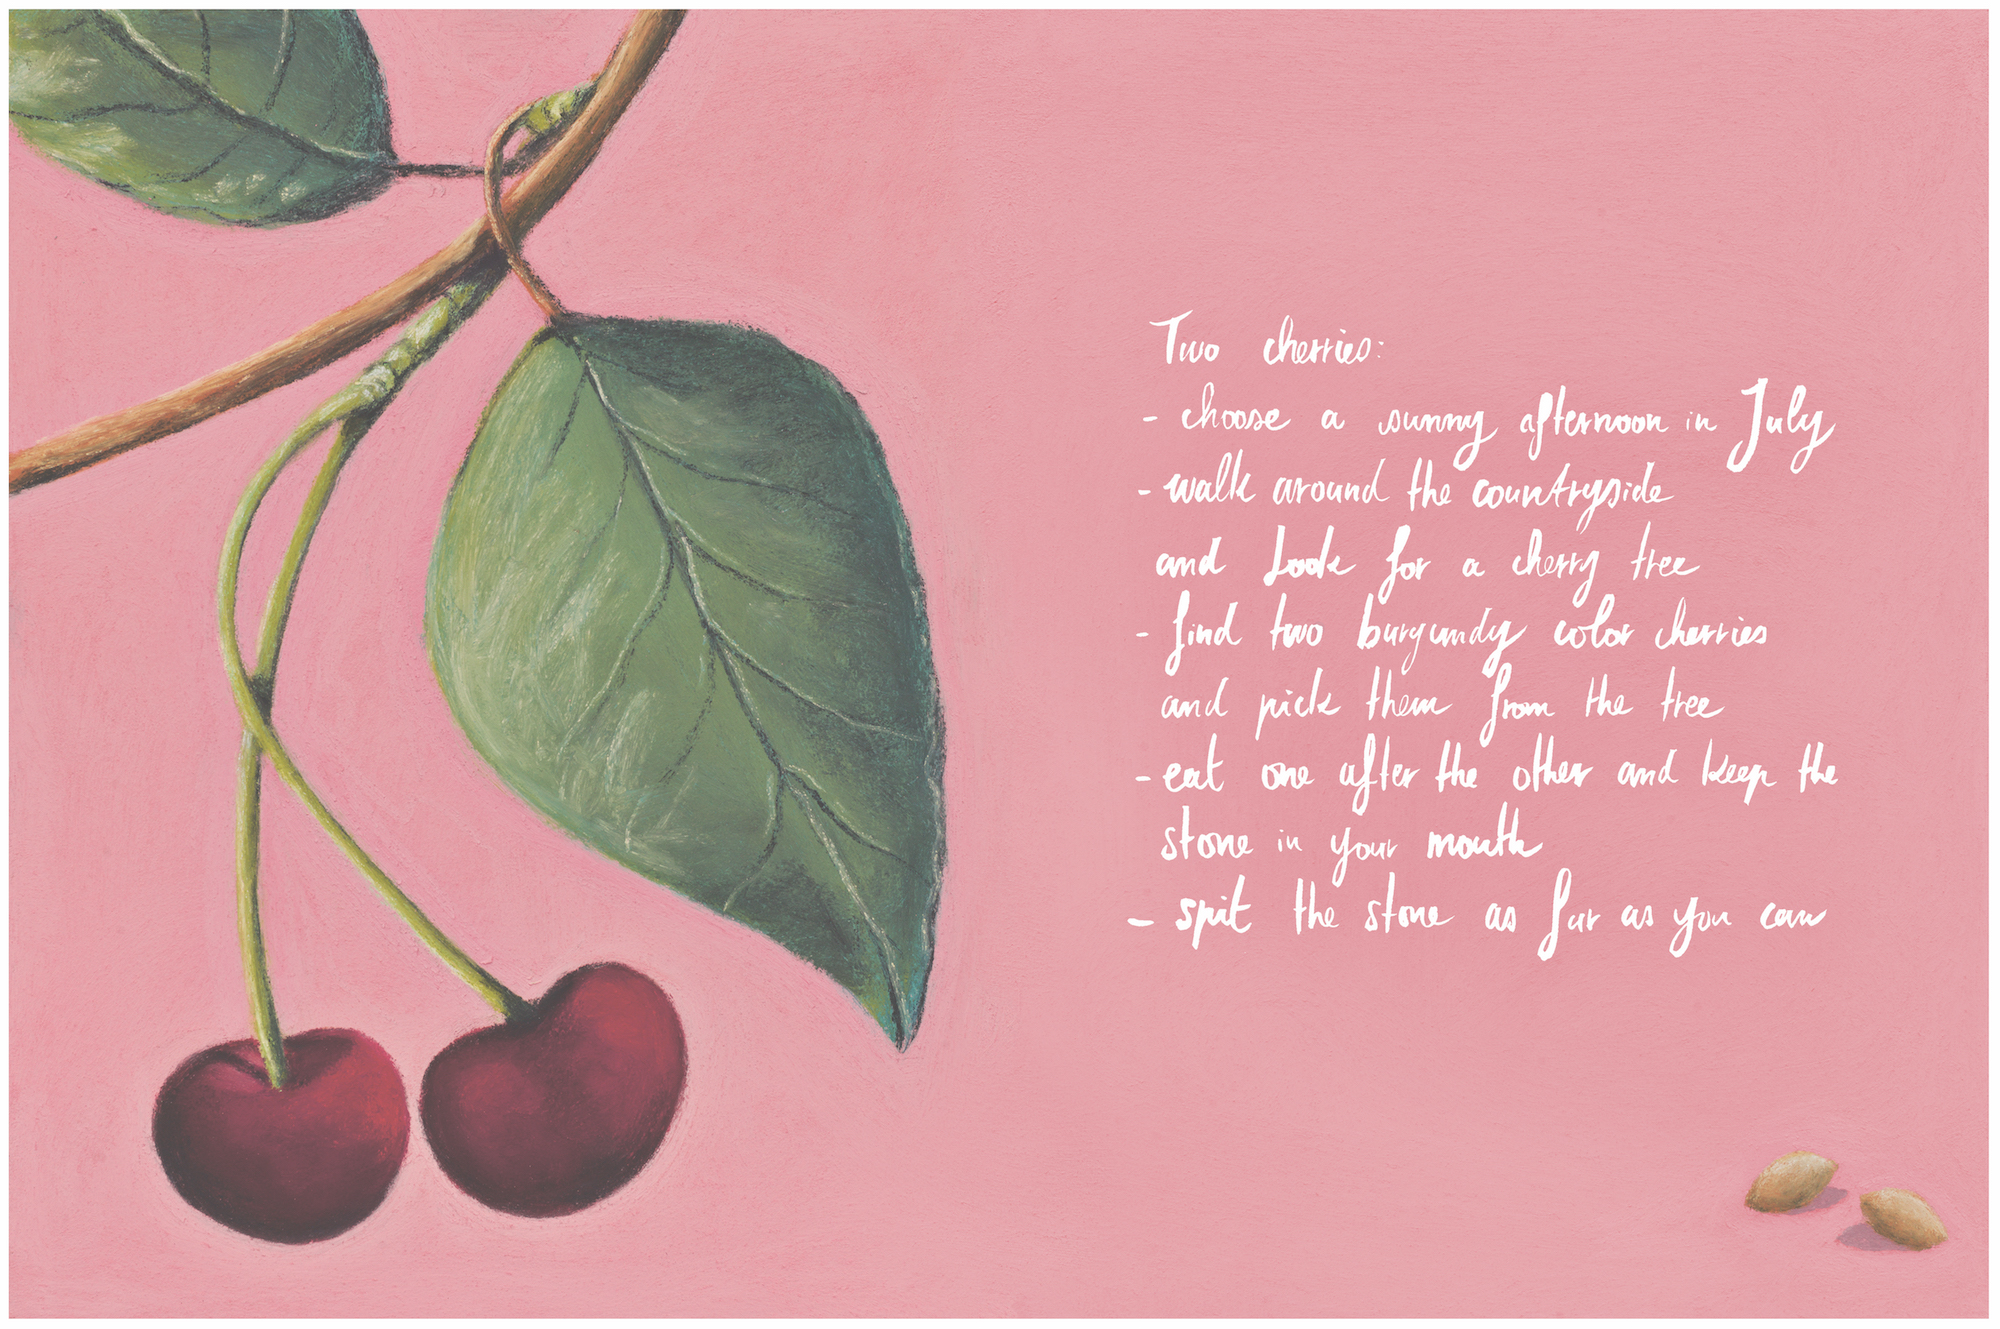 Two cherries:
- choose a sunny afternoon in July
- walk around the countryside
and Look for a cherry tree
- find two burgundy color cherries
and pick them from the tree
- eat one after the other and keep the
stone in your mouth
- spit the stone as far as you can